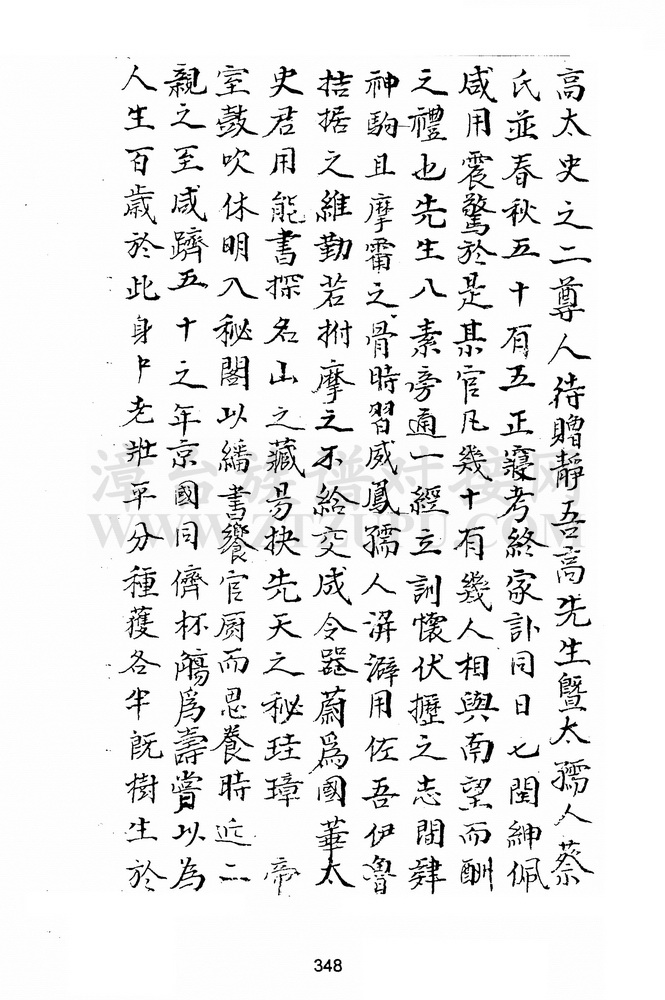 高太史之二尊人待贈靜吾高先生暨太孺人蔡
氏並春秋五十有五正寢考終家訃同日七閩紳佩
咸用震驚於是某官凡幾十有幾人相與南望而酬
之禮也先生八素旁通一經立訓懷伏櫪之志閒肄
神駒且摩霄之骨時習威鳳孺人洴澼用佐吾伊魯
拮据之維勤若拊摩之不給交成令器蔚爲國華太
史君用能書探名山之藏易抉先天之秘珪璋 帝
室鼓吹休明入秘閣以繙書饗官厨而思養時近二
親之至咸躋五十之年京國同儕杯觴爲壽嘗以為
人生百歲於此身中老壯平分種穫各半既樹生於
漳台族谱对接网
WWW.ZTZUPU.COM
348